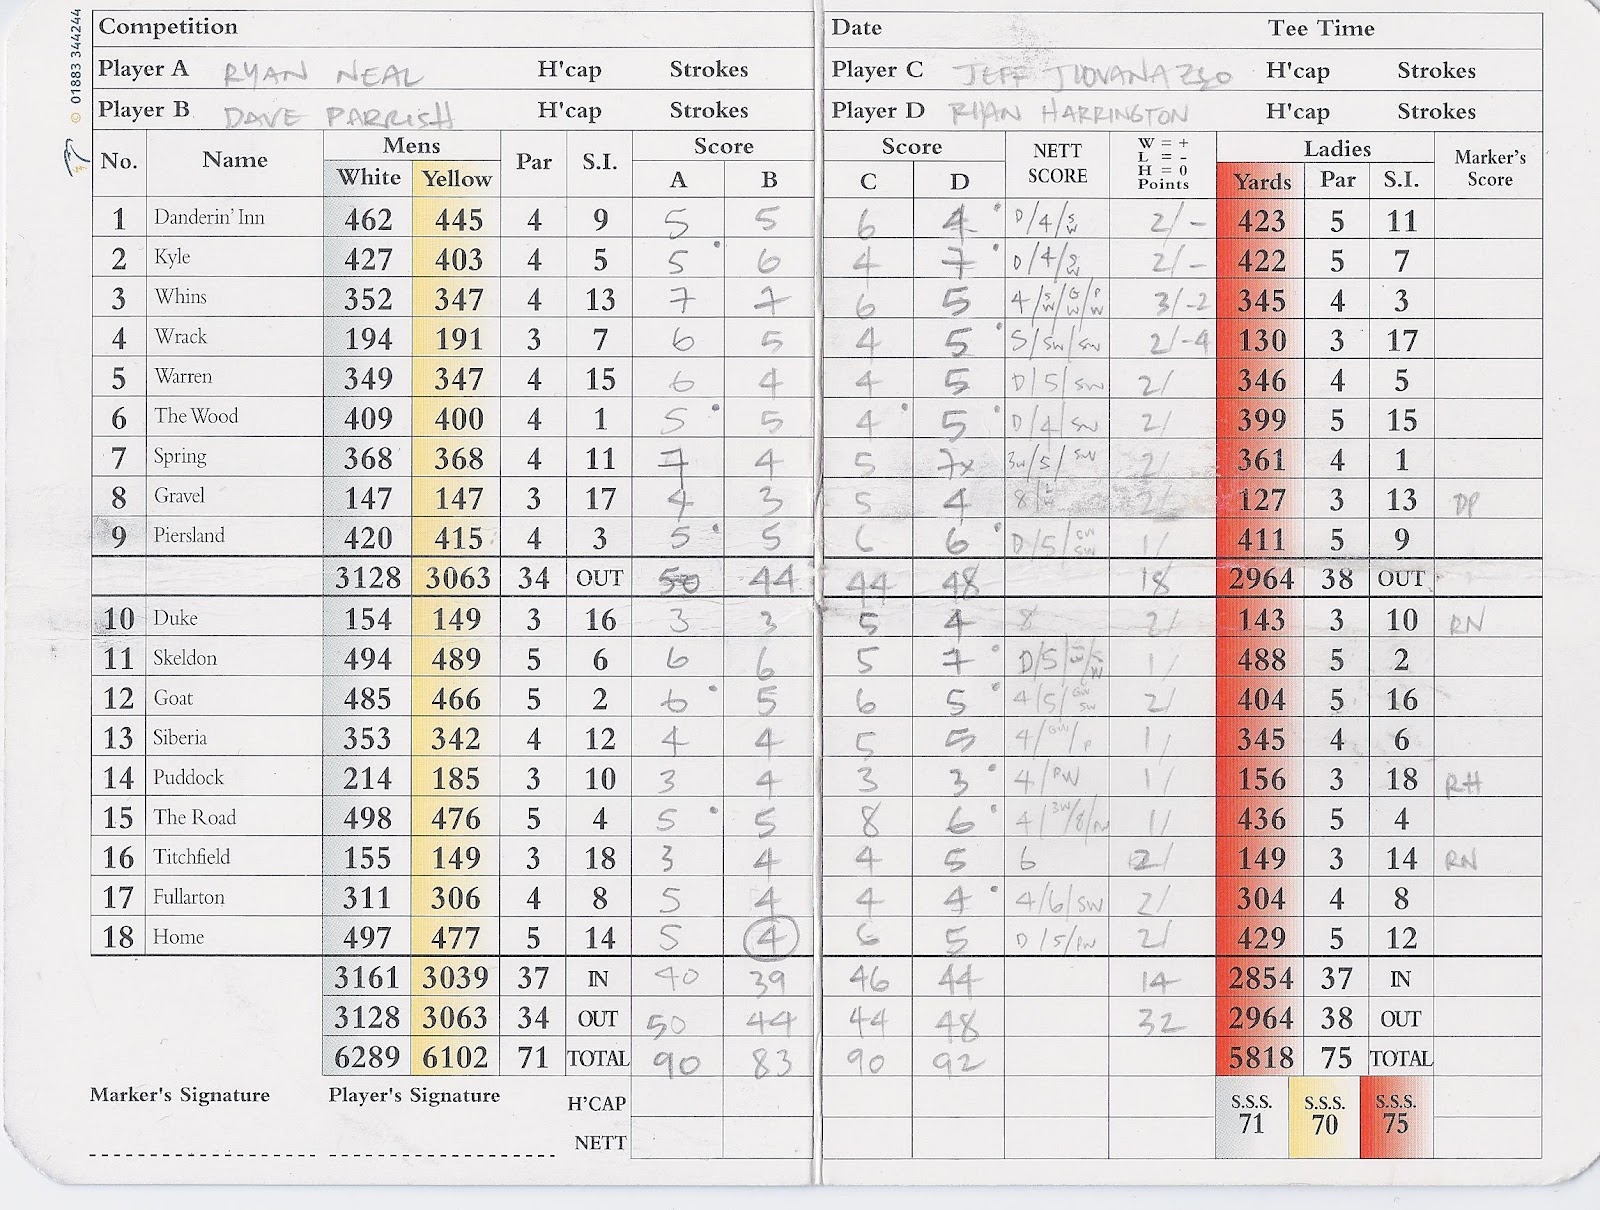 © 01883 344244
Competition Date Tee Time
Player A RYAN NEAL H'cap Strokes Player C JEFF H'cap Strokes
Player B DAVE PARRISH H'cap Strokes Player D RYAN HARRINGTON H'cap Strokes
No. Name Mens White Yellow Par S.I. Score A B Score C D NETT SCORE W = + L = - H = 0 Points Ladies Yards Par S.I. Marker's Score
1 Danderin' Inn 462 445 4 9 5 5 6 4 D/4/SW 2/- 423 5 11
2 Kyle 427 403 4 5 5 6 4 7 D/4/SW 2/- 422 5 7
3 Whins 352 347 4 13 7 7 6 5 4/SW/GW/PW 3/-2 345 4 3
4 Wrack 194 191 3 7 6 5 4 5 5/SW/SW 2/-4 130 3 17
5 Warren 349 347 4 15 6 4 4 5 D/5/SW 2/ 346 4 5
6 The Wood 409 400 4 1 5 5 4 5 D/4/SW 2/ 399 5 15
7 Spring 368 368 4 11 7 4 5 7x 3W/5/SW 2/ 361 4 1
8 Gravel 147 147 3 17 4 3 5 4 8 2/ 127 3 13 DP
9 Piersland 420 415 4 3 5 5 6 6 D/5/GW SW 1/ 411 5 9
3128 3063 34 OUT 50 44 44 48 18 2964 38 OUT
10 Duke 154 149 3 16 3 3 5 4 8 2/ 143 3 10 RN
11 Skeldon 494 489 5 6 6 6 5 7 D/5/ 1/ 488 5 2
12 Goat 485 466 5 2 6 5 6 5 4/5/GW SW 2/ 404 5 16
13 Siberia 353 342 4 12 4 4 5 5 4/GW/P 1/ 345 4 6
14 Puddock 214 185 3 10 3 4 3 3 4/PW 1/ 156 3 18 RH
15 The Road 498 476 5 4 5 5 8 6 4/3W/8/PW 1/ 436 5 4
16 Titchfield 155 149 3 18 3 4 4 5 6 2/ 149 3 14 RN
17 Fullarton 311 306 4 8 5 4 4 4 4/6/SW 2/ 304 4 8
18 Home 497 477 5 14 5 4 6 5 D/5/PW 2/ 429 5 12
3161 3039 37 IN 40 39 46 44 14 2854 37 IN
3128 3063 34 OUT 50 44 44 48 32 2964 38 OUT
6289 6102 71 TOTAL 90 83 90 92 5818 75 TOTAL
Marker's Signature Player's Signature H'CAP S.S.S. 71 S.S.S. 70 S.S.S. 75
NETT